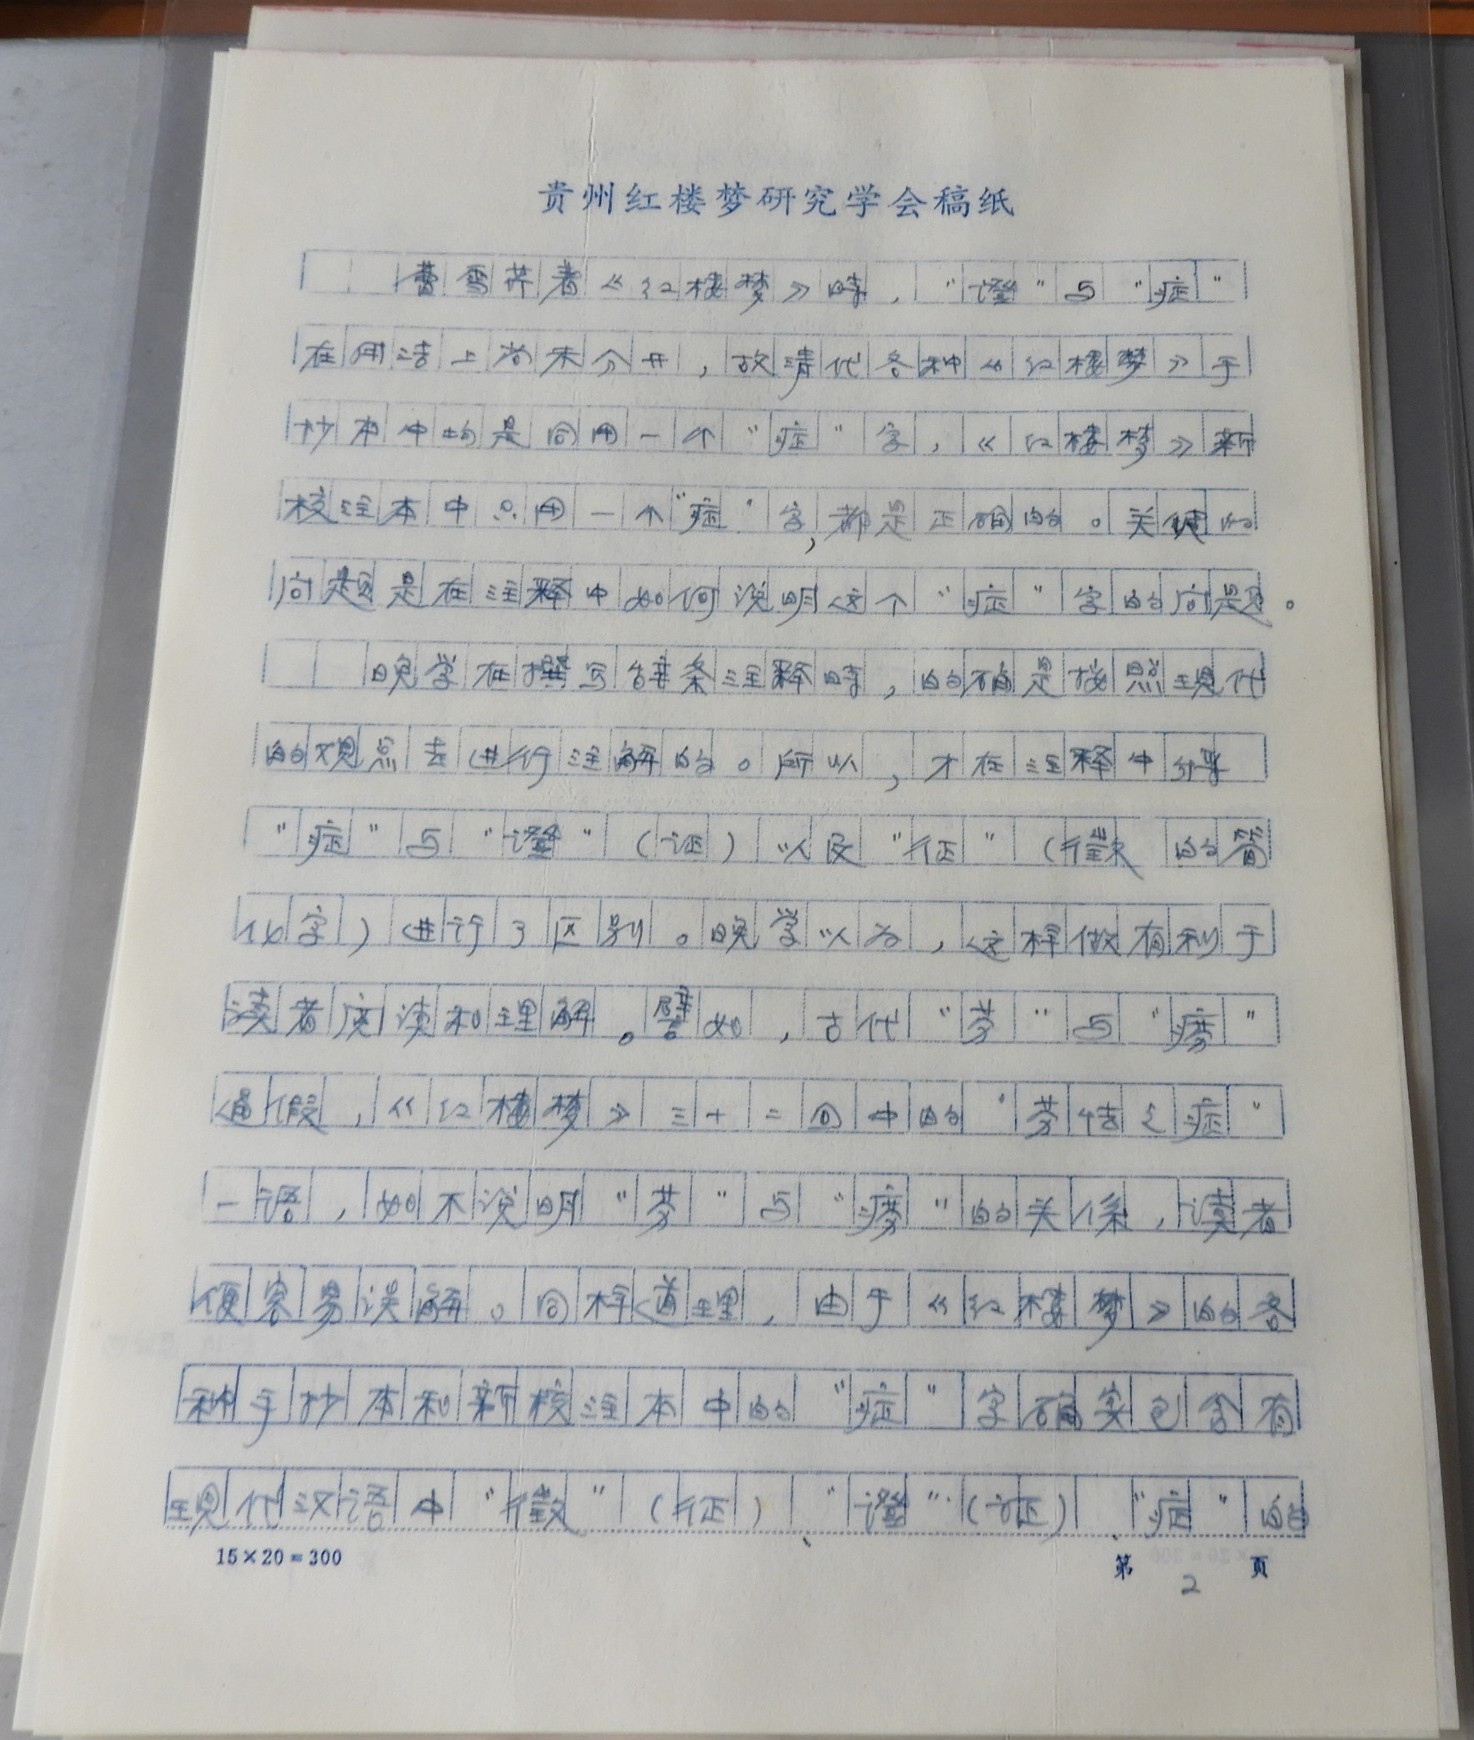 贵州红楼梦研究学会稿纸
曹雪芹著《红楼梦》時，“證”与“症”
在用法上尚未分开，故清代各种《红楼梦》手
抄本中均是同用一个“症”字，《红楼梦》新
校注本中只用一个“症”字，都是正确的。关键的
问题是在注释中如何说明这个“症”字的问题。
晚学在撰写辞条注释時，的确是按照现代
的观点去进行注解的。所以，才在注释中分案
“症”与“證”（证）以及“征”（徵的简
化字）进行了区别。晚学以为，这样做有利于
读者度读和理解。譬如，古代“劳”与“痨”
通假，《红楼梦》三十二回中的“劳怯之症”
一语，如不说明“劳”与“痨”的关係，读者
便容易误解。同样道理，由于《红楼梦》的各
种手抄本和新校注本中的“症”字确实包含有
现代汉语中“徵”（征）、“證”（证）、“症”的
15×20=300
第 2 页